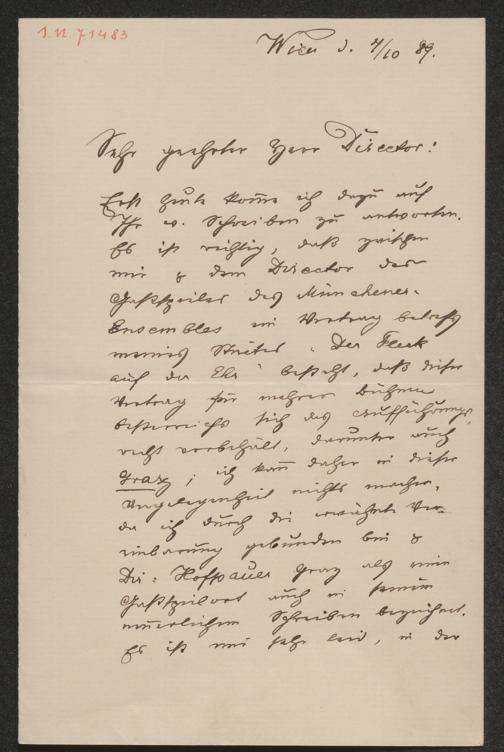 I.N. 71483
Wien d. 4/10 89.
Sehr geehrter Herr Director!
Erst heute komme ich dazu auf
Ihr w. Schreiben zu antworten.
Es ist richtig, daß zwischen
mir & dem Director des
Gastspieles des Münchener-
Ensembles ein Vertrag betreffs
meines Stückes „Der Fleck
auf der Ehr" besteht, daß dieser
Vertrag für mehrere Bühnen
Österreichs sich das Aufführungs-
recht vorbehält, darunter auch
Graz; ich kann daher in dieser
Angelegenheit nichts machen,
da ich durch die erwähnte Ver-
einbarung gebunden bin &
Dir: Hofpauer Graz als einen
Gastspielort auch in seinem
neuerlichen Schreiben bezeichnet.
Es ist mir sehr leid, in der